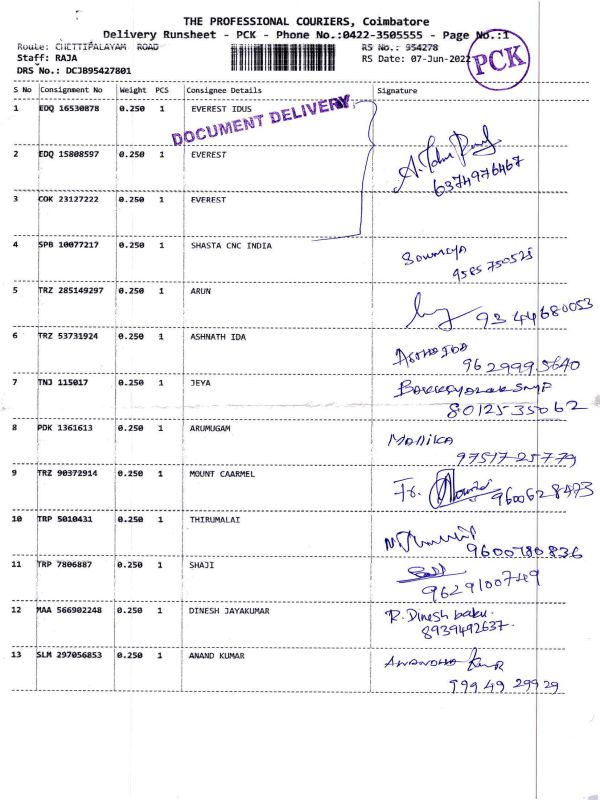 THE PROFESSIONAL COURIERS, Coimbatore
Delivery Runsheet - PCK - Phone No.:0422-3505555 - Page No.:1
Route: CHETTIPALAYAM ROAD RS No.: 954278
Staff: RAJA RS Date: 07-Jun-2022
PCK
DRS No.: DCJB95427801
S No Consignment No Weight PCS Consignee Details Signature
1 EDQ 16530878 0.250 1 EVEREST IDUS
DOCUMENT DELIVERY
2 EDQ 15808597 0.250 1 EVEREST
6374976467
3 COK 23127222 0.250 1 EVEREST
4 SPB 10077217 0.250 1 SHASTA CNC INDIA
Sowmiya
9585750525
5 TRZ 285149297 0.250 1 ARUN
9344680053
6 TRZ 53731924 0.250 1 ASHNATH IDA
9629995640
7 TNJ 115017 0.250 1 JEYA
8012535062
8 PDK 1361613 0.250 1 ARUMUGAM
Manika
9751725779
9 TRZ 90372914 0.250 1 MOUNT CAARMEL
Fr. 9600628473
10 TRP 5010431 0.250 1 THIRUMALAI
9600780836
11 TRP 7806887 0.250 1 SHAJI
9629100749
12 MAA 566902248 0.250 1 DINESH JAYAKUMAR
R. Dinesh babu.
8939492637.
13 SLM 297056853 0.250 1 ANAND KUMAR
99949 29929